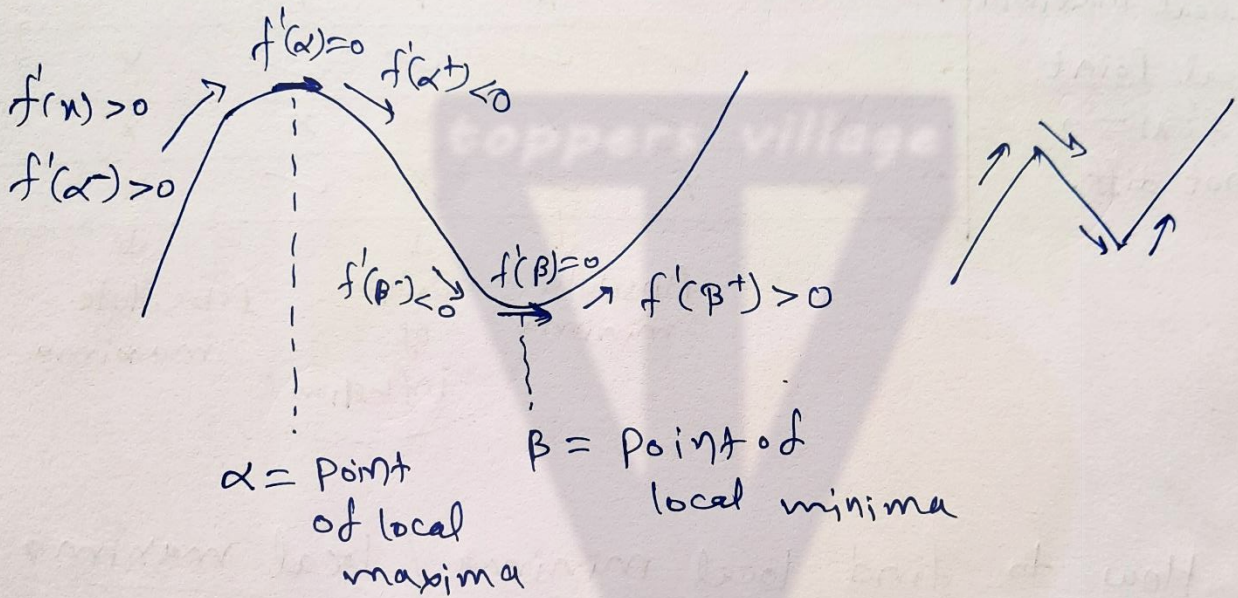 f'(α)=0
f'(α+)<0
f'(x)>0
f'(α-)>0
toppers village
f'(β-)<0
f'(β)=0
f'(β+)>0
α = Point
of local
maxima
β = Point of
local minima